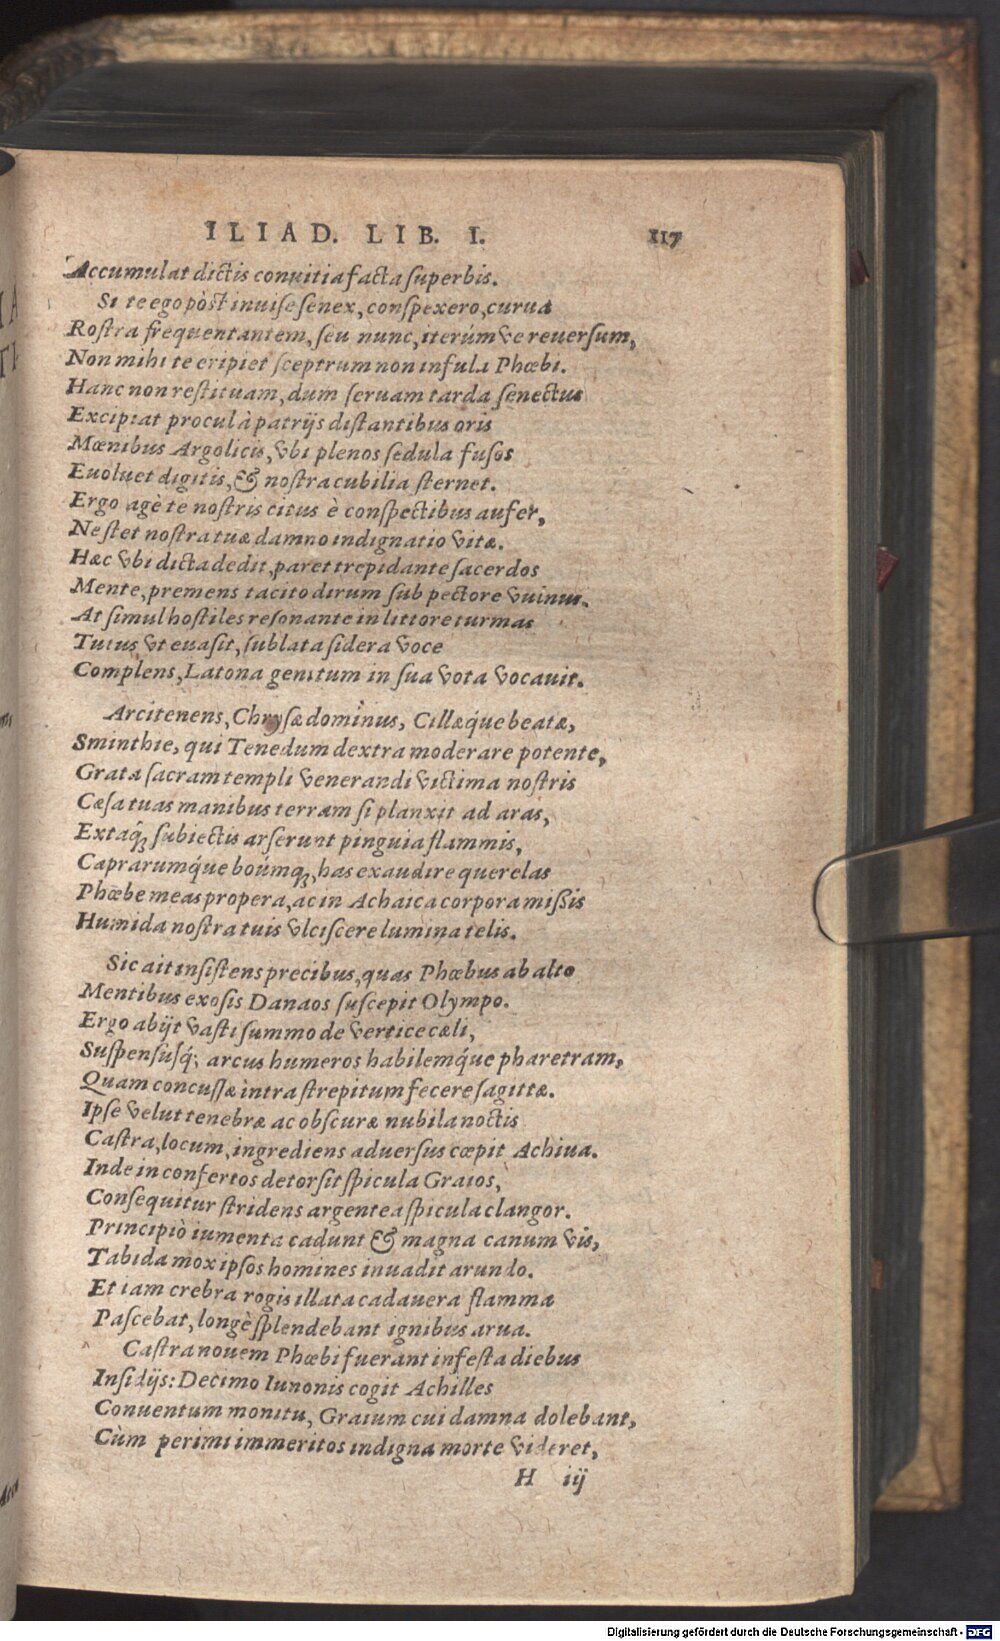 ILIAD. LIB. I. 117
Accumulat dictis conuitia facta superbis.
Si te ego pòst inuise senex, conspexero, curua
Rostra frequentantem, seu nunc, iterúmve reuersum,
Non mihi te eripiet sceptrum non infula Phœbi.
Hanc non restituam, dum seruam tarda senectus
Excipiat procul à patrijs distantibus oris
Mœnibus Argolicis, vbi plenos sedula fusos
Euoluet digitis, & nostra cubilia sternet.
Ergo agè te nostris citus è conspectibus aufer,
Ne stet nostra tuæ damno indignatio vitæ.
Hæc vbi dicta dedit, paret trepidante sacerdos
Mente, premens tacito dirum sub pectore vulnus.
At simul hostiles resonante in littore turmas
Tutus vt euasit, sublata sidera voce
Complens, Latona genitum in sua vota vocauit.
Arcitenens, Chrysæ dominus, Cillæque beatæ,
Sminthie, qui Tenedum dextra moderare potente,
Grata sacram templi venerandi victima nostris
Cæsa tuas manibus terram si planxit ad aras,
Extaq́; subiectis arserunt pinguia flammis,
Caprarumq́ue boúmq;, has exaudire querelas
Phœbe meas propera, ac in Achaica corpora missis
Humida nostra tuis vlciscere lumina telis.
Sic ait insistens precibus, quas Phœbus ab alto
Mentibus exosis Danaos suscepit Olympo.
Ergo abijt vasti summo de vertice cæli,
Suspensusq́; arcus humeros habilemq́ue pharetram,
Quam concussæ intra strepitum fecere sagittæ.
Ipse velut tenebræ ac obscuræ nubila noctis
Castra, locum, ingrediens aduersus cœpit Achiua.
Inde in confertos detorsit spicula Graios,
Consequitur stridens argentea spicula clangor.
Principiò iumenta cadunt & magna canum vis,
Tabida mox ipsos homines inuadit arundo.
Et iam crebra rogis illata cadauera flamma
Pascebat, longè splendebant ignibus arua.
Castra nouem Phœbi fuerant infesta diebus
Insidijs: Decimo Iunonis cogit Achilles
Conuentum monitu, Graium cui damna dolebant,
Cùm perimi immeritos indigna morte videret,
H iij
Digitalisierung gefördert durch die Deutsche Forschungsgemeinschaft - DFG